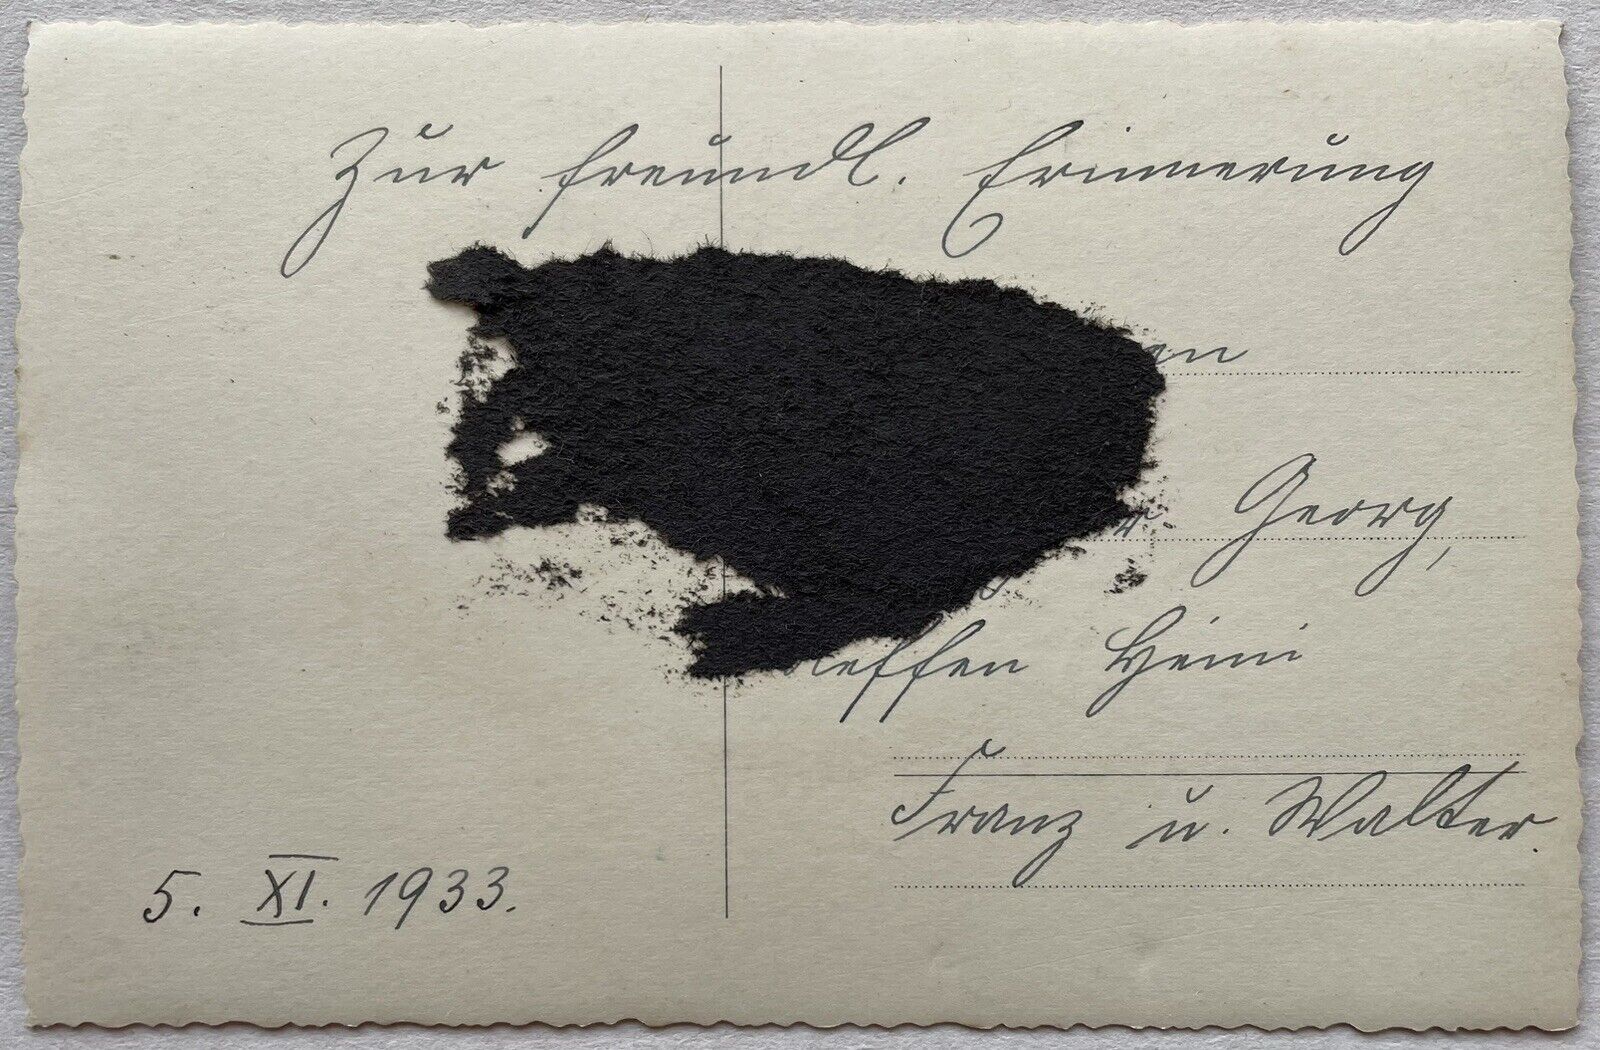 Zur freundl. Erinnerung
en
r Georg,
Neffen Heini
Franz u. Walter.
5. XI. 1933.